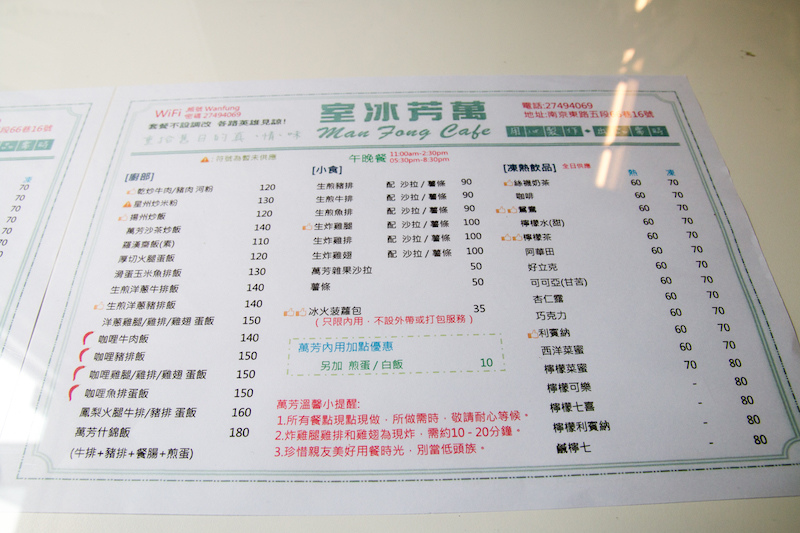 WiFi 萬芳 Wanfung
密碼 27494069
套餐不設調改 各路英雄見諒!
室冰芳萬
Man Fong Cafe
電話:27494069
地址:南京東路五段66巷16號
:符號為暫未供應
午晚餐 11:00am-2:30pm
05:30pm-8:30pm
[廚部]
乾炒牛肉/豬肉 河粉 120
星州炒米粉 130
揚州炒飯 120
萬芳沙茶炒飯 140
羅漢齋飯(素) 110
厚切火腿蛋飯 120
滑蛋玉米魚排飯 130
生煎洋蔥牛排飯 140
生煎洋蔥豬排飯 140
洋蔥雞腿/雞排/雞翅 蛋飯 150
咖哩牛肉飯 140
咖哩豬排飯 150
咖哩雞腿/雞排/雞翅 蛋飯 150
咖哩魚排蛋飯 150
鳳梨火腿牛排/豬排 蛋飯 160
萬芳什錦飯 180
(牛排+豬排+餐腸+煎蛋)
[小食]
生煎豬排 配 沙拉 / 薯條 90
生煎牛排 配 沙拉 / 薯條 90
生煎魚排 配 沙拉 / 薯條 90
生炸雞腿 配 沙拉 / 薯條 100
生炸雞排 配 沙拉 / 薯條 100
生炸雞翅 配 沙拉 / 薯條 100
萬芳雜果沙拉 50
薯條 50
冰火菠蘿包 35
( 只限內用,不設外帶或打包服務 )
萬芳內用加點優惠
另加 煎蛋 / 白飯 10
萬芳溫馨小提醒:
1.所有餐點現點現做,所做需時,敬請耐心等候。
2.炸雞腿雞排和雞翅為現炸,需約10 - 20分鐘。
3.珍惜親友美好用餐時光,別當低頭族。
[凍熱飲品] 全日供應
熱 凍
絲襪奶茶 60 70
咖啡 60 70
鴛鴦 60 70
檸檬水(甜) 60 70
檸檬茶 60 70
阿華田 60 70
好立克 60 70
可可亞(甘苦) 60 70
杏仁露 60 70
巧克力 60 70
利賓納 60 70
西洋菜蜜 60 70
檸檬菜蜜 70 80
檸檬可樂 - 80
檸檬七喜 - 80
檸檬利賓納 - 80
鹹檸七 - 80
段66巷16號
凍
70
70
70
70
70
70
70
70
70
70
70